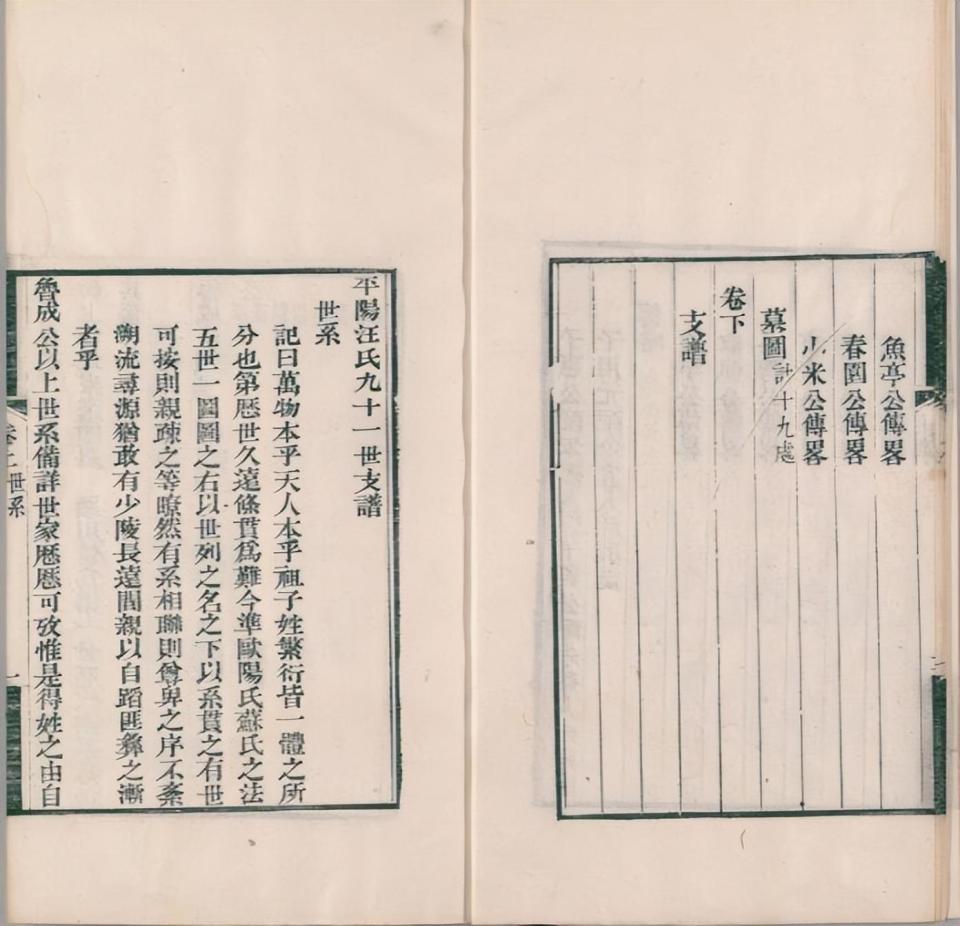 魚亭公傳畧
春園公傳畧
小米公傳畧
墓圖計十九處
卷下
支譜
平陽汪氏九十一世支譜
世系
記曰萬物本乎天人本乎祖子姓繁衍皆一體之所
分也第歷世久遠條貫爲難今準歐陽氏蘇氏之法
五世一圖圖之右以世列之名之下以系貫之有世
可按則親疎之等暸然有系相聯則尊卑之序不紊
溯流尋源猶敢有少陵長遠間親以自蹈匪彝之漸
者乎
魯成公以上世系備詳世家歷歷可攷惟是得姓之由自
卷上世系
一